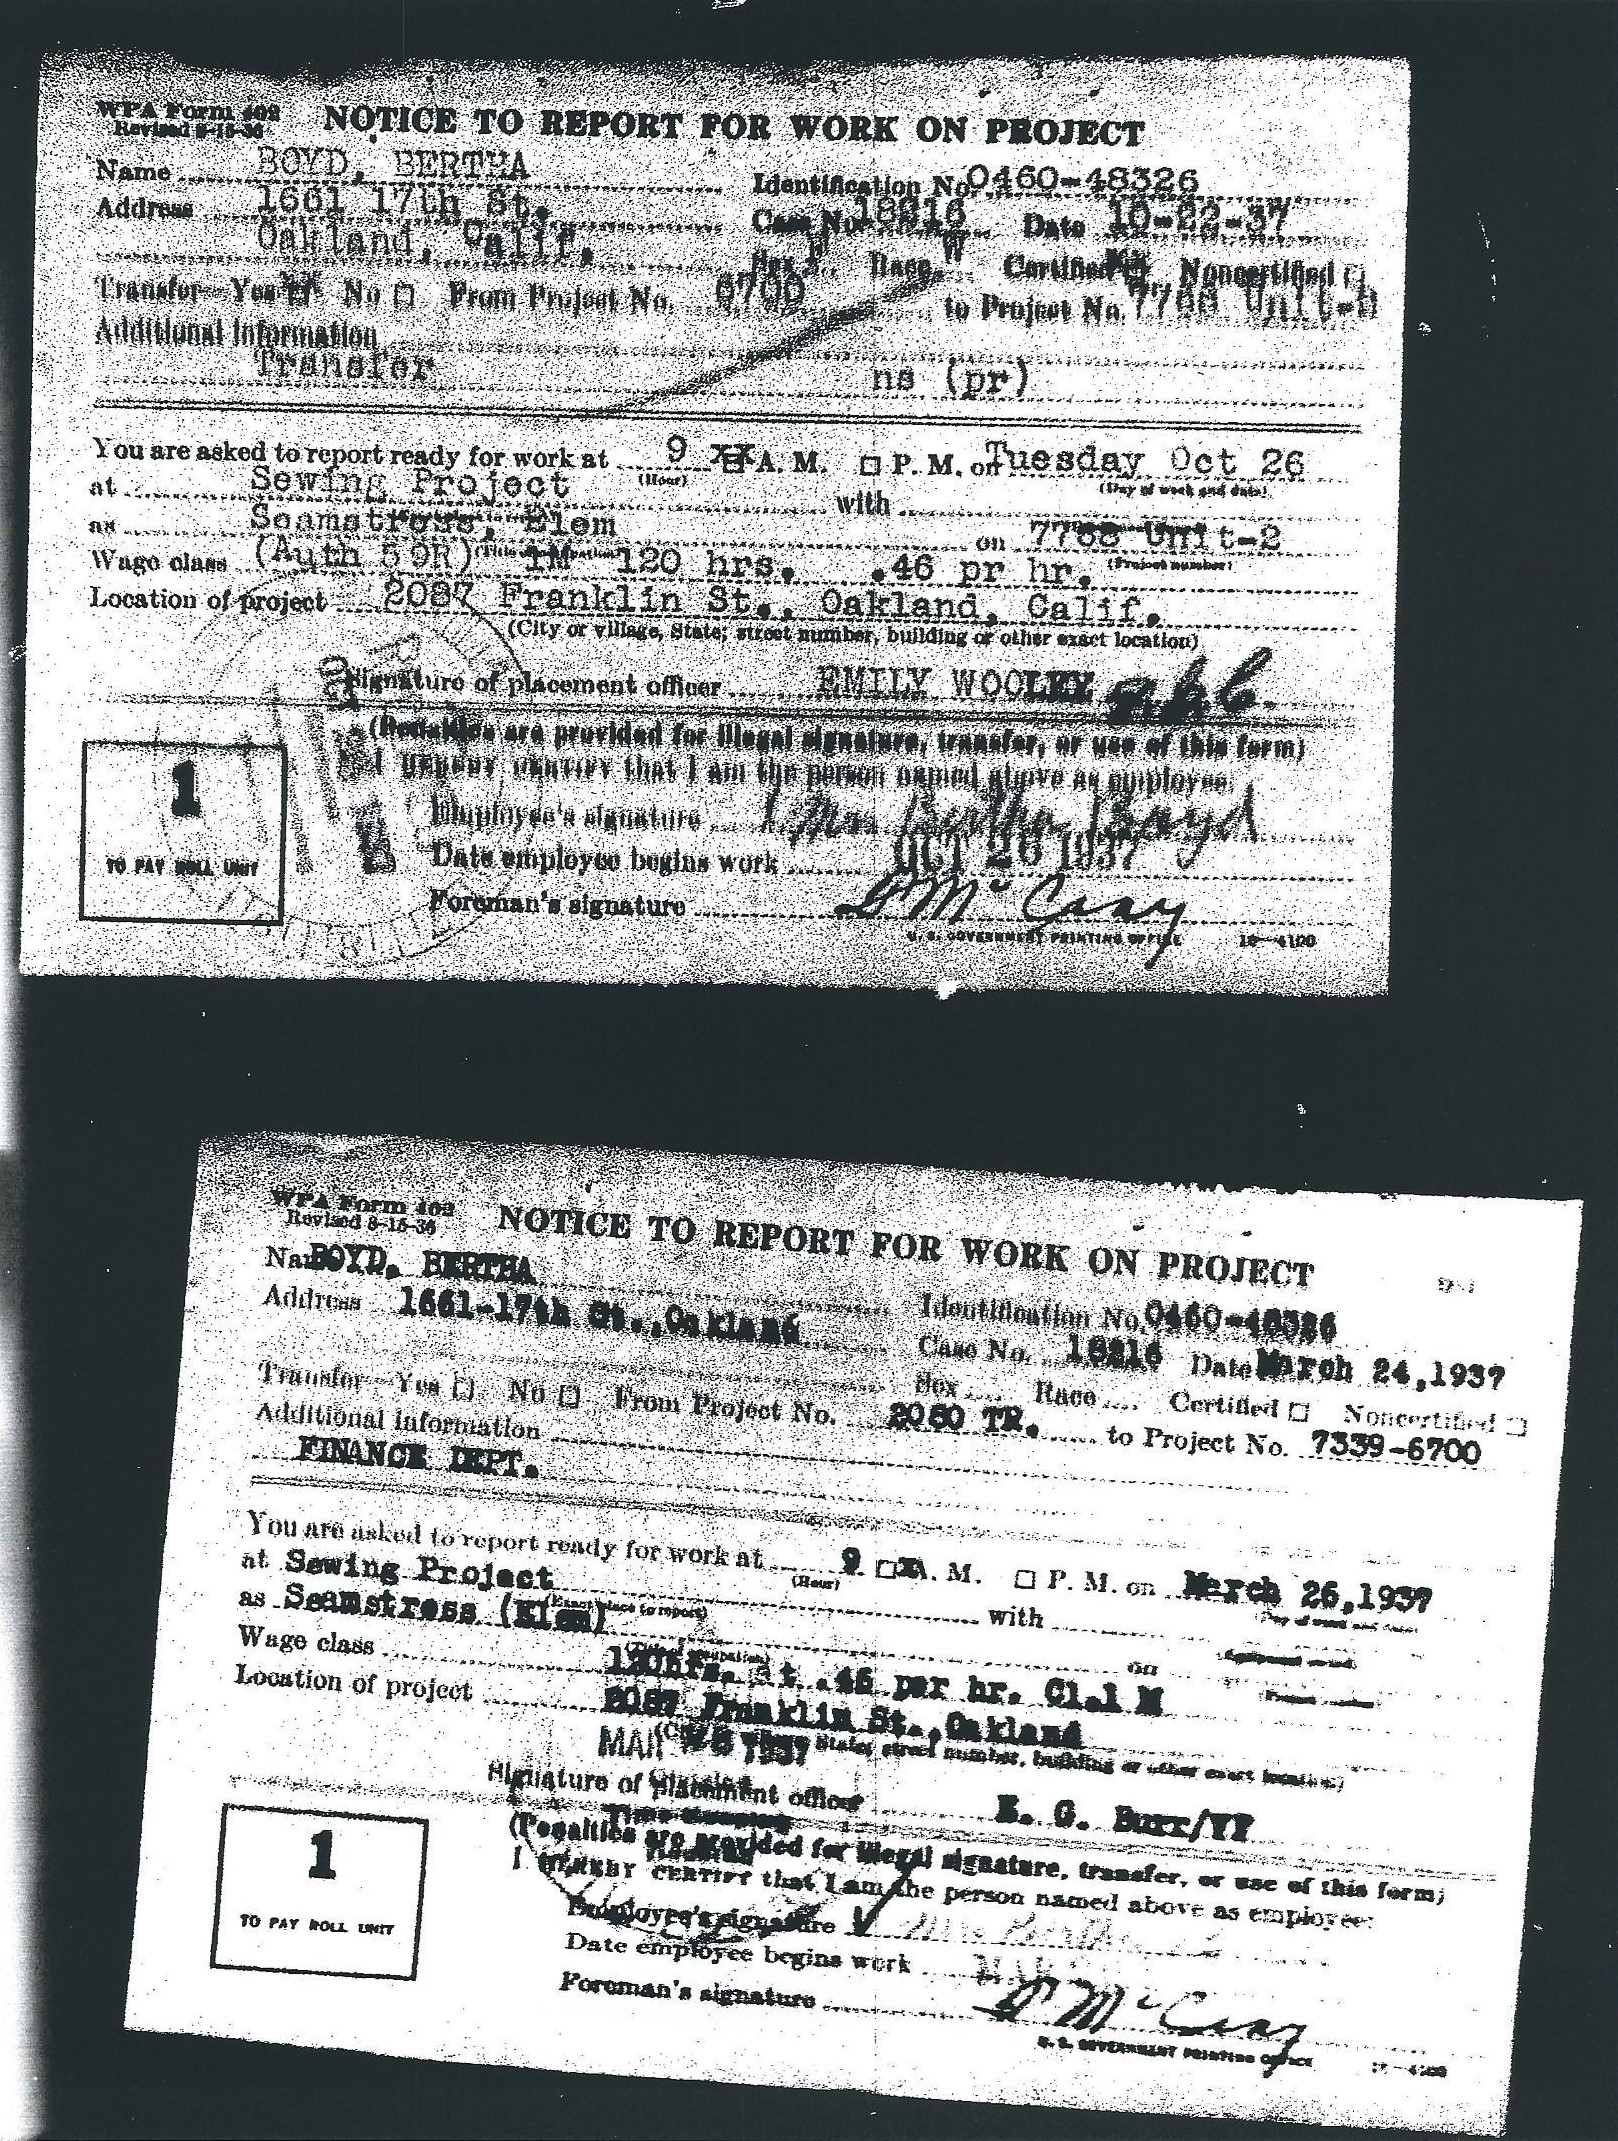 WPA Form 402 NOTICE TO REPORT FOR WORK ON PROJECT
Revised 8-15-36
Name BOYD, BERTHA
Identification No. 0460-48326
Address 1661 17th St.
Case No. 18216 Date 10-22-37
Oakland, Calif.
Sex F Race W Certified Noncertified
Transfer—Yes No From Project No. 6700 to Project No. 7788 Unit-2
Additional information
Transfer ns (pr)
You are asked to report ready for work at 9 XX A. M. P. M. on Tuesday Oct 26
(Hour) (Day of week and date)
at Sewing Project with
as Seamstress, Elem on 7788 Unit-2
Wage class (Auth 59R) 1M 120 hrs. .46 pr hr. (Project number)
Location of project 2087 Franklin St., Oakland, Calif.
(City or village, State; street number, building or other exact location)
Signature of placement officer EMILY WOOLEY
(Penalties are provided for illegal signature, transfer, or use of this form)
I HEREBY CERTIFY that I am the person named above as employee.
Employee's signature Mrs Bertha Boyd
Date employee begins work OCT 26 1937
Foreman's signature S McCray
1
TO PAY ROLL UNIT
U. S. GOVERNMENT PRINTING OFFICE 16—4100
WPA Form 402 NOTICE TO REPORT FOR WORK ON PROJECT
Revised 8-15-36
BOYD, BERTHA
Identification No. 0460-48326
Address 1661-17th St., Oakland
Case No. 18216 Date March 24, 1937
Sex Race Certified Noncertified
Transfer—Yes No From Project No. 2080 TR. to Project No. 7339-6700
Additional information
FINANCE DEPT.
You are asked to report ready for work at 9 A. M. P. M. on March 26, 1937
(Hour)
at Sewing Project with
as Seamstress (Elem) on
Wage class 120hrs. at .46 per hr. Cl.1 M
Location of project 2087 Franklin St., Oakland
State; street number, building or other exact location)
MAR 1937
Signature of placement officer E. G. Burr/YY
(Penalties are provided for illegal signature, transfer, or use of this form)
I HEREBY CERTIFY that I am the person named above as employee:
Employee's signature Mrs Bertha
Date employee begins work MAR
Foreman's signature S McCray
1
TO PAY ROLL UNIT
U. S. GOVERNMENT PRINTING OFFICE